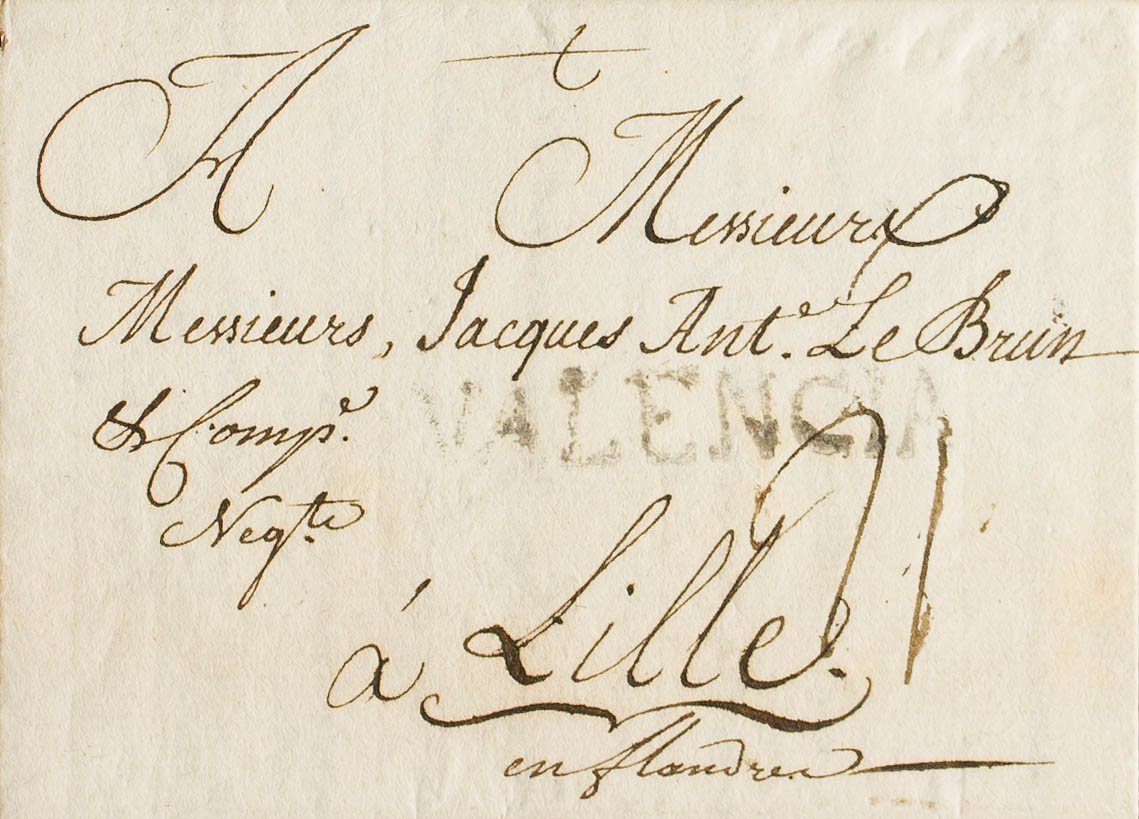 A Messieurs
Messieurs, Jacques Ant.e Le Brun
& Comp.e
VALENCIA
Neg.te
21
á Lille.
en flandres